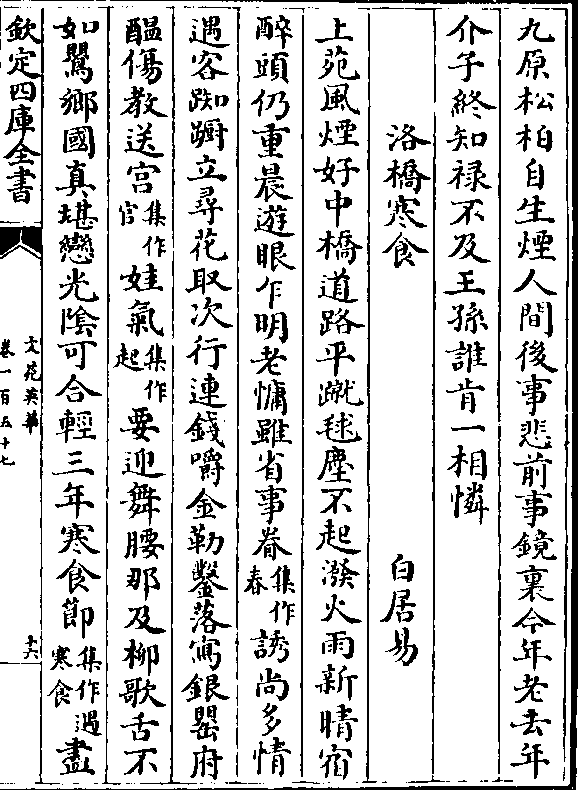 九原松柏自生煙人間後事悲前事鏡裏今年老去年
介子終知禄不及王孫誰肯一相憐
洛橋寒食 白居易
上苑風煙好中橋道路平蹴毬塵不起潑火雨新晴宿
醉頭仍重晨遊眼乍明老慵雖省事眷集作春誘尚多情
遇客踟蹰立尋花取次行連錢嚼金勒鑿落寫銀罌府
醖傷教送宫集作官娃氣集作起要迎舞腰那及柳歌舌不
如鸎鄉國真堪戀光陰可合輕三年寒食節集作遇寒食盡
欽定四庫全書
文苑英華
卷一百五十七
十六